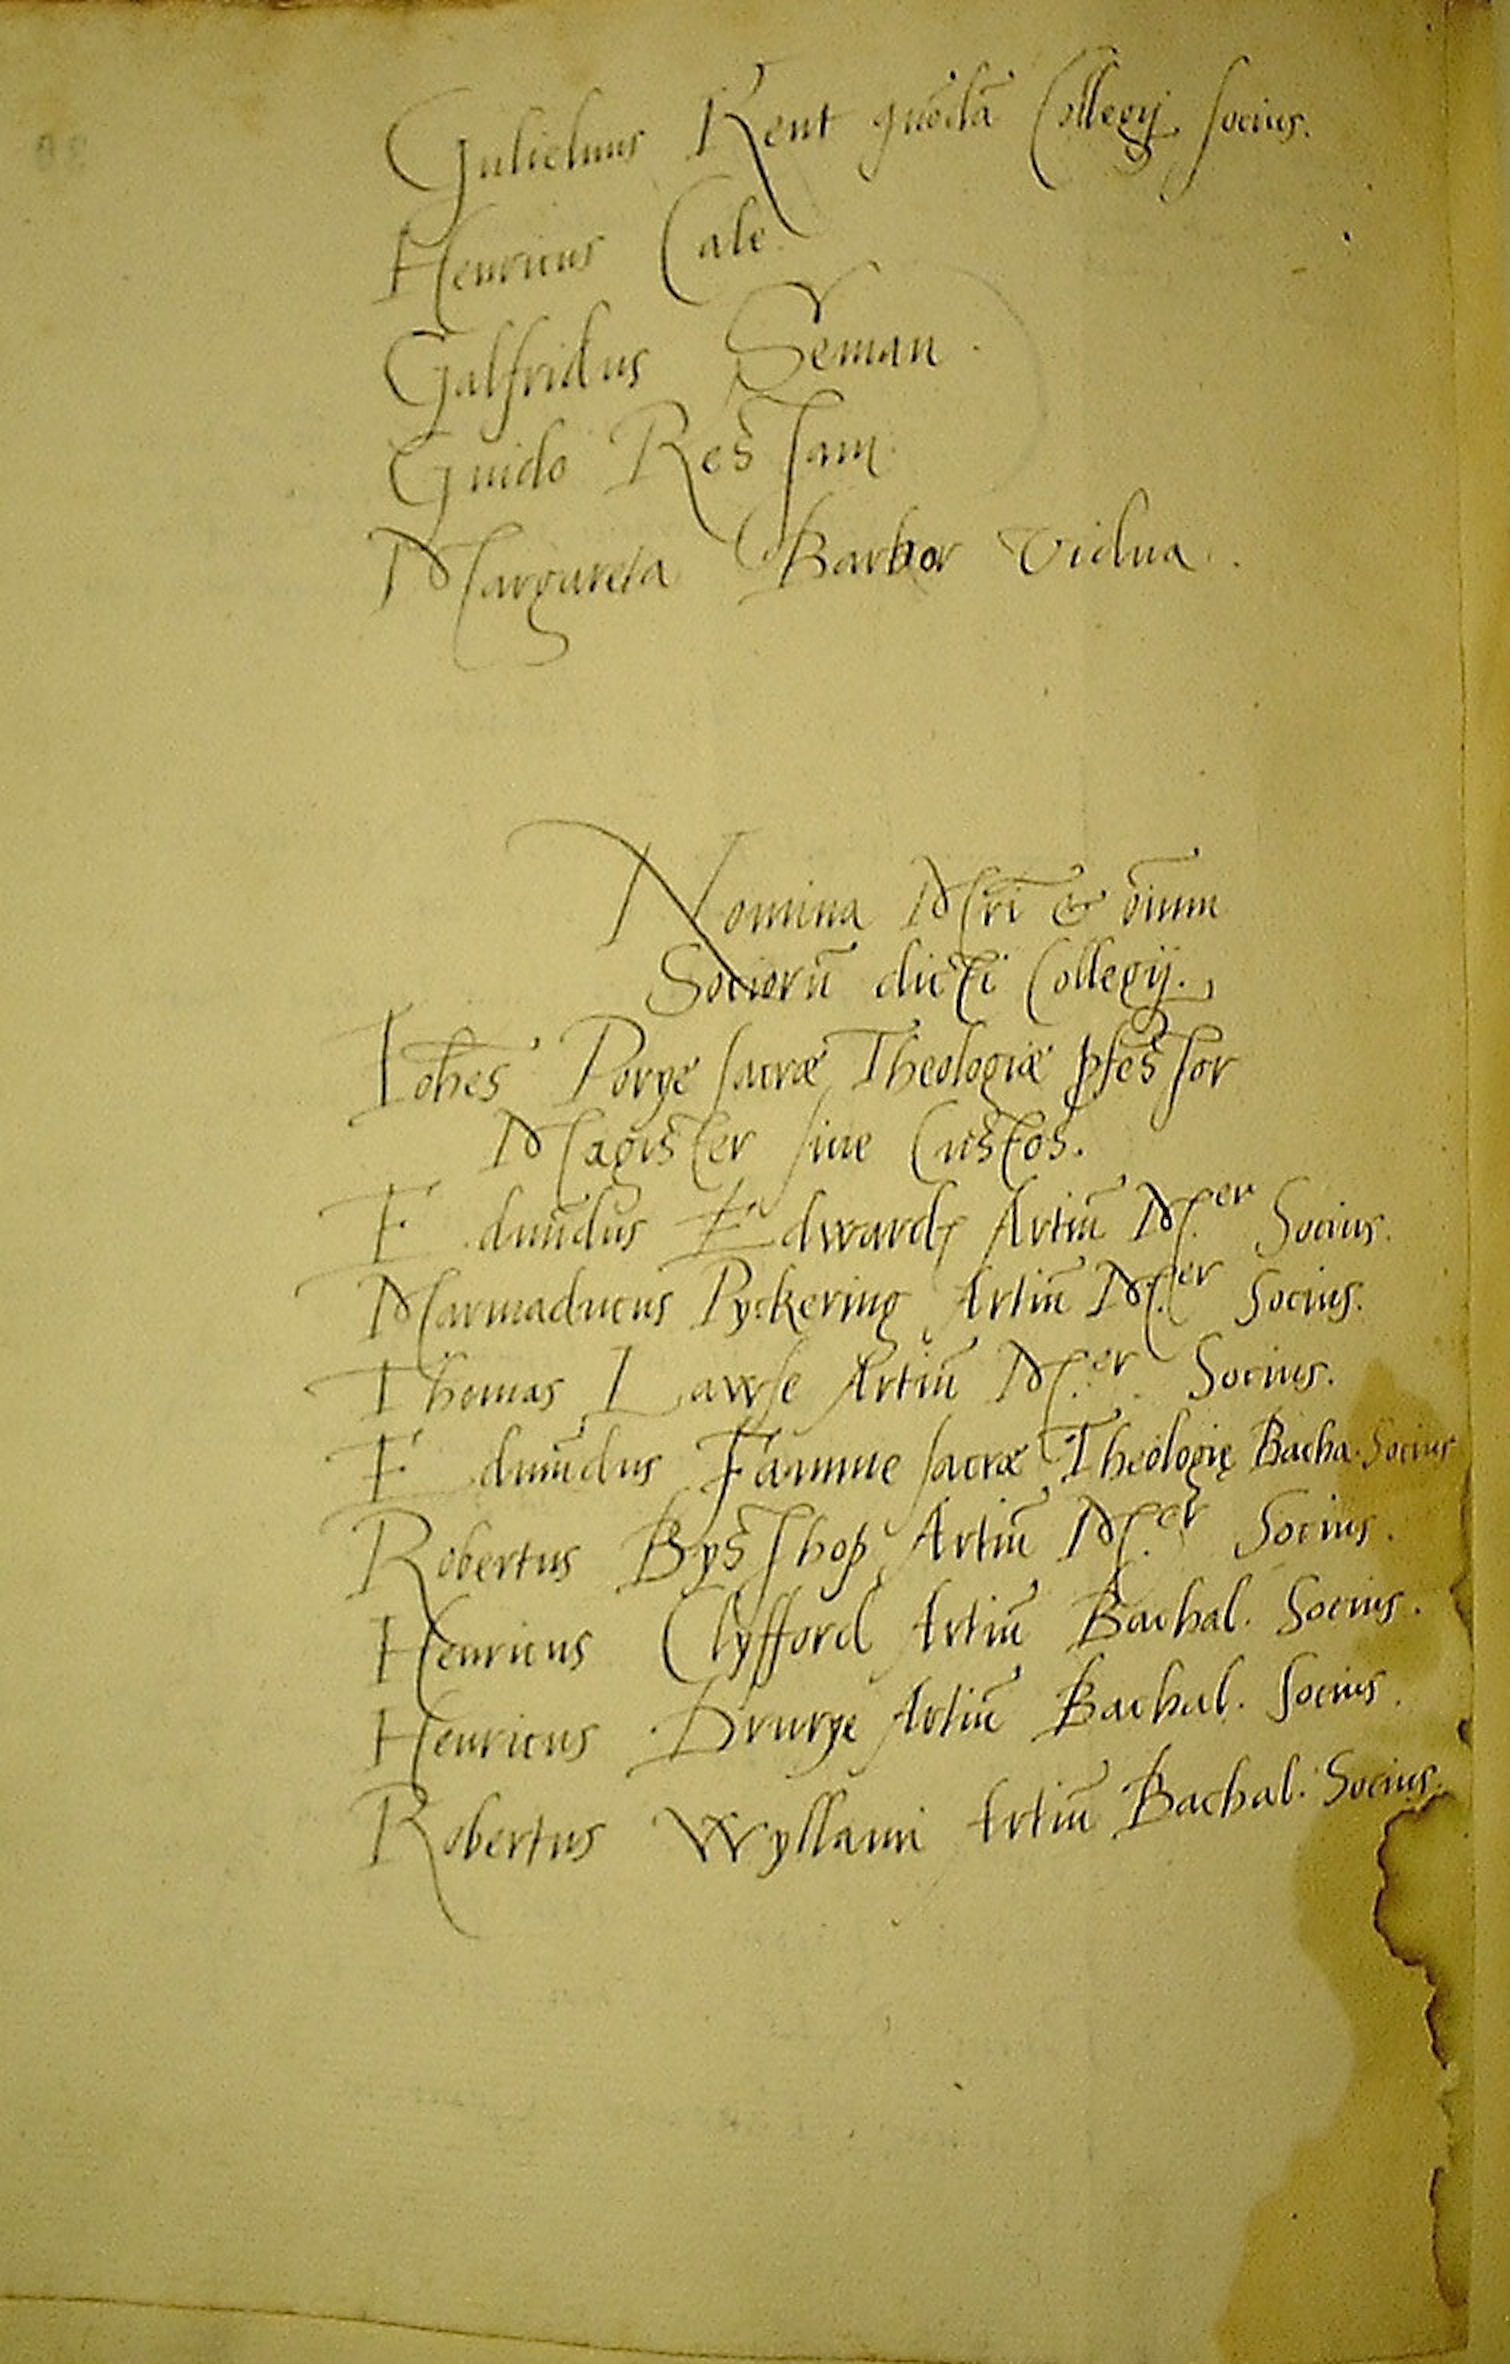 Gulielmus Kent quōdā Collegij socius.
Henricus Cale.
Galfridus Seman.
Guido Ressam
Margareta Barbor Vidua.
Nomina Mr̄i & oīum
Sociorū dicti Collegij.
Iohēs Porye sacræ Theologiæ ꝓfessor
Magister siue Custos.
Edmūdus Edwardꝭ Artiū M.er Socius.
Marmaducus Pyckering Artiū M.er Socius.
Thomas Lawse Artiū M.er Socius.
Edmūdus Famme sacræ Theologię Bacha. Socius
Robertus Bysshop Artiū M.er Socius.
Henricus Clyfford Artiū Bachal. Socius.
Henricus Drurye Artiū Bachal. Socius.
Robertus Wyllam Artiū Bachal. Socius.